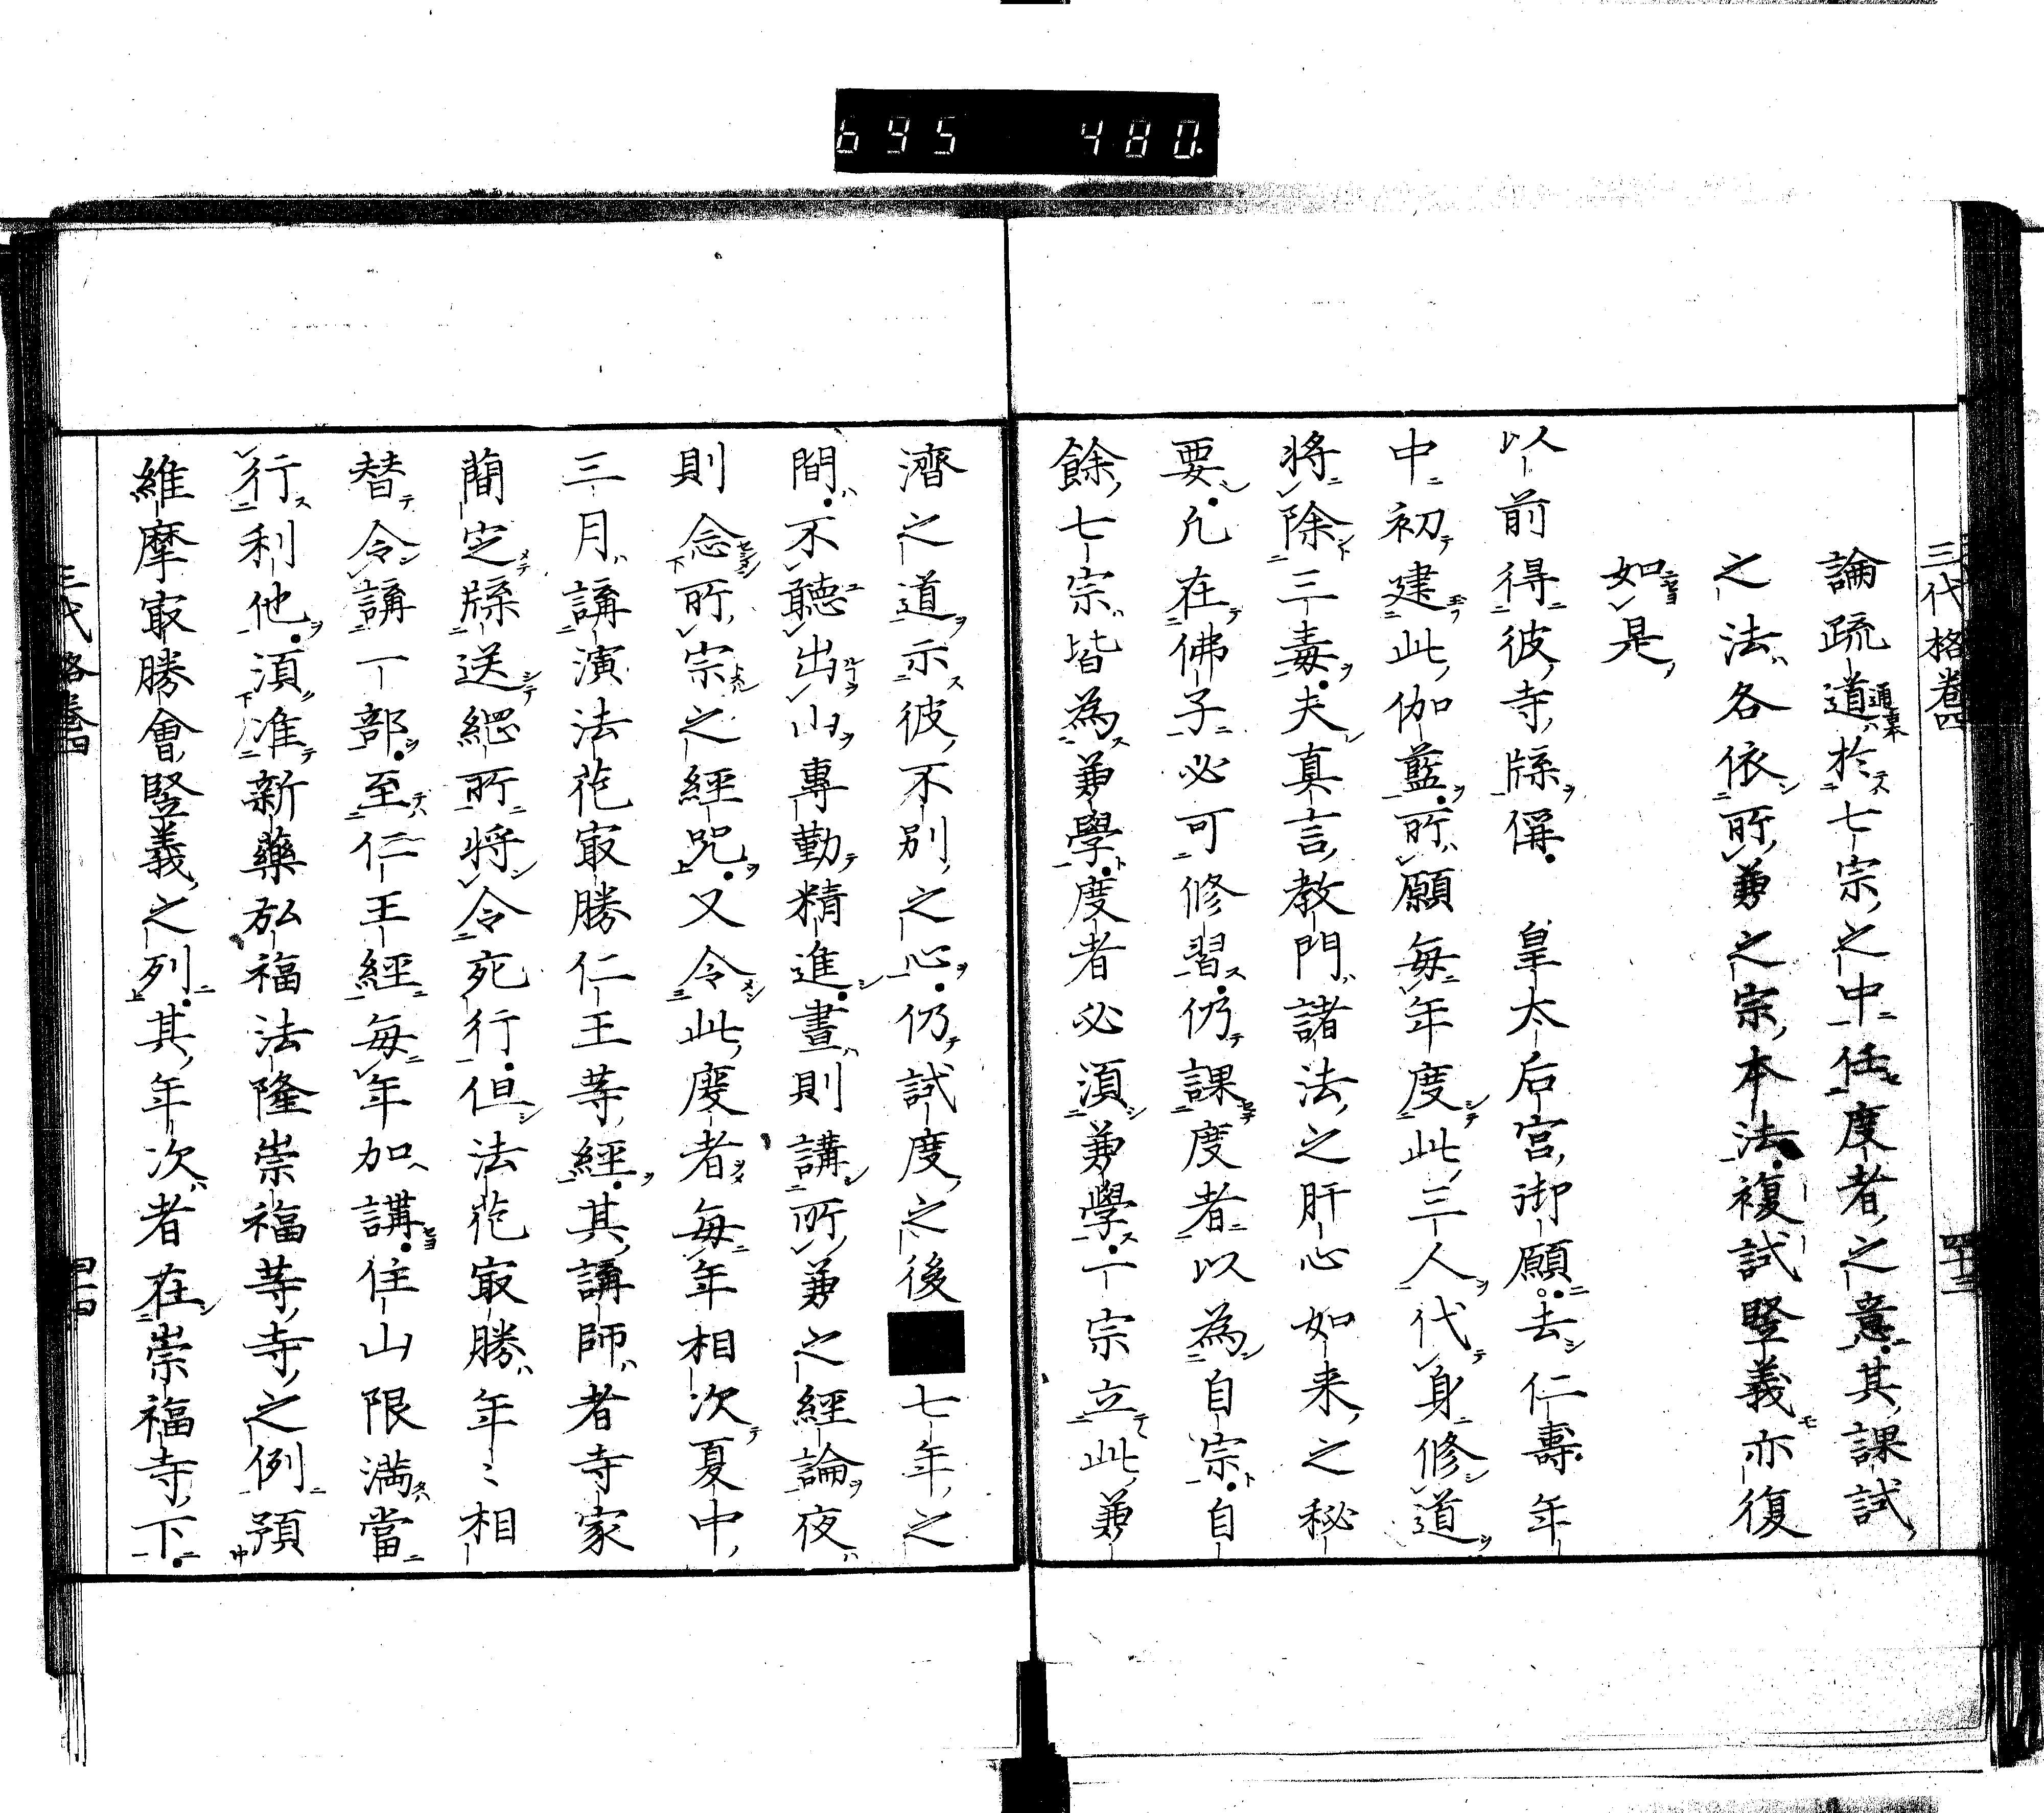 695 480.
三代格卷四 四十三
論疏道於七宗之中任度者之意其課試
之法各依所兼之宗本法複試竪義亦復
如是
以前得彼寺牒偁 皇太后宮御願去仁壽年
中初建此伽藍所願每年度此三人代身修道
將除三毒夫真言教門諸法之肝心如来之秘
要凡在佛子必可修習仍課度者以為自宗自
餘七宗皆為兼學度者必須兼學一宗立此兼
濟之道示彼不別之心仍試度之後■七年之
間不聽出山專勤精進晝則講所兼之經論夜
則念所宗之經咒又令此度者每年相次夏中
三月講演法花㝡勝仁王等經其講師者寺家
蕳定牒送綱所將令宛行但法花㝡勝年〻相
替令講一部至仁王經每年加講住山限満當
行利他須准新藥弘福法隆崇福等寺之例預
維摩㝡勝會竪義之列其年次者在崇福寺下
三代格卷四 四十四